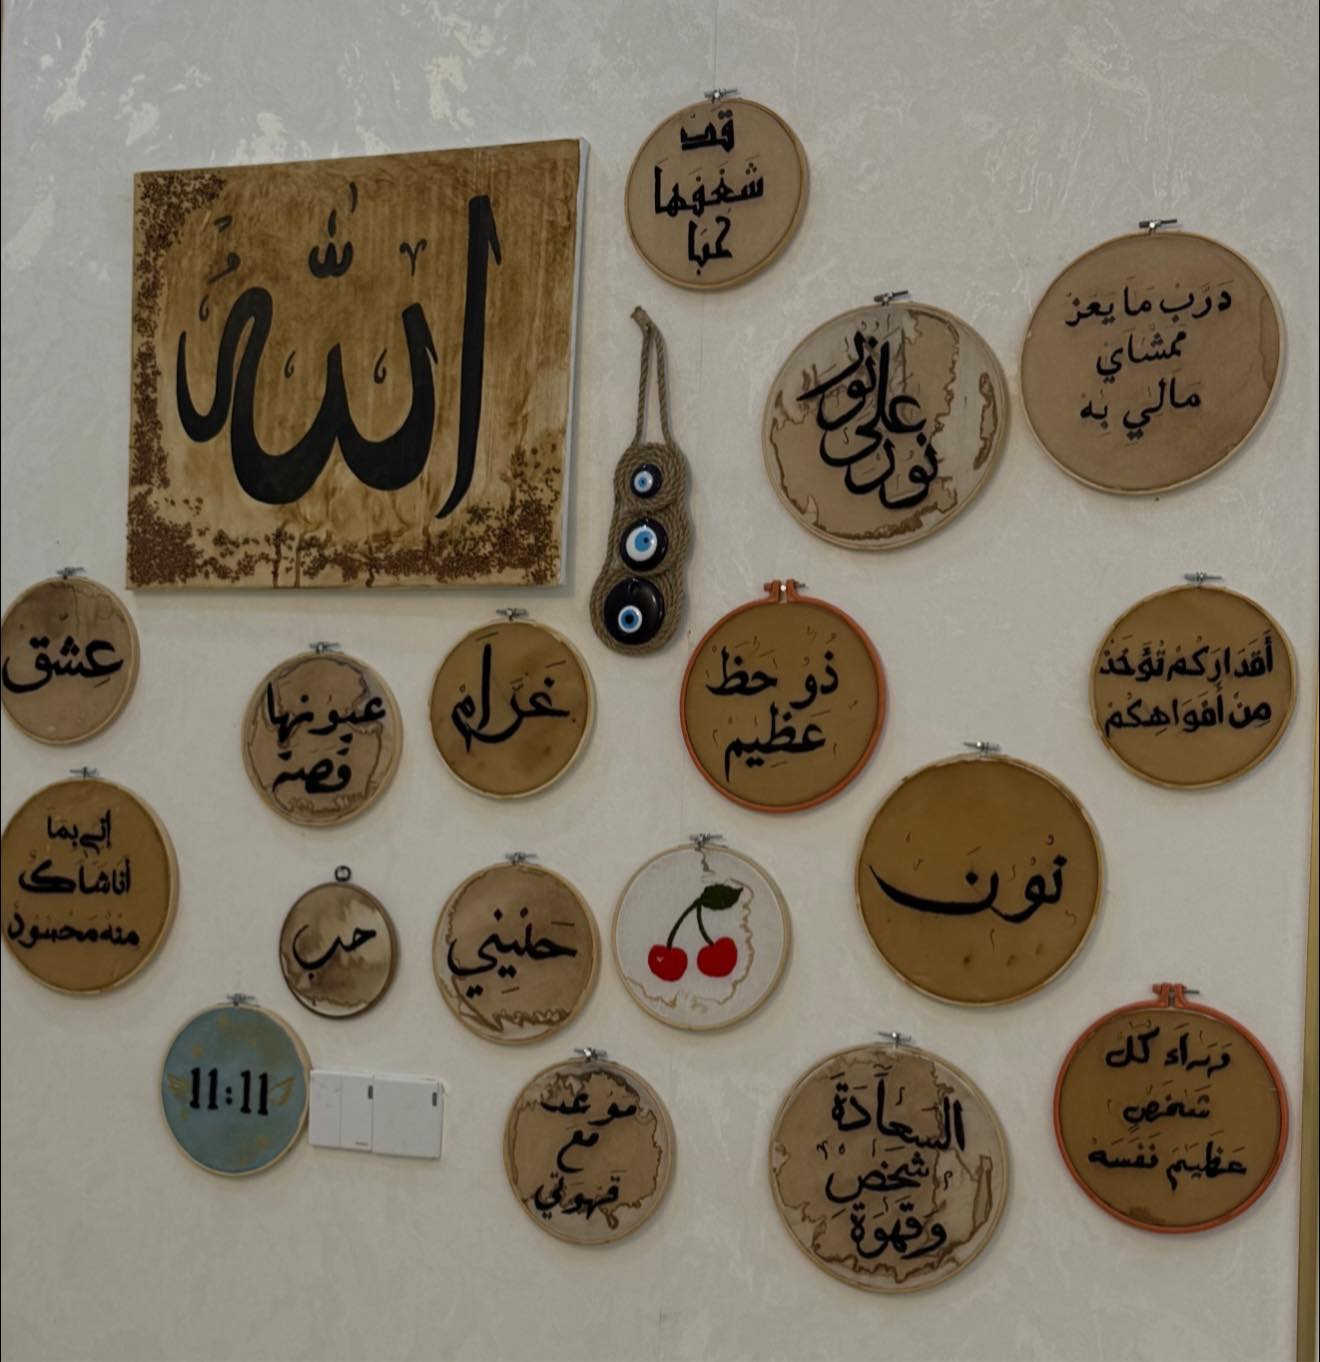 الله
قد
شغفها
حبا
نور
على
نور
درب ما يعز
ممشاي
مالي به
عشق
عيونها
قصة
غرام
ذو حظ
عظيم
أقداركم تؤخذ
من أفواهكم
إني بما
أنا شاك
منه محسود
حب
حنيني
نون
11:11
موعد
مع
قهوتي
السعادة
شخص
وقهوة
وراء كل
شخص
عظيم نفسه